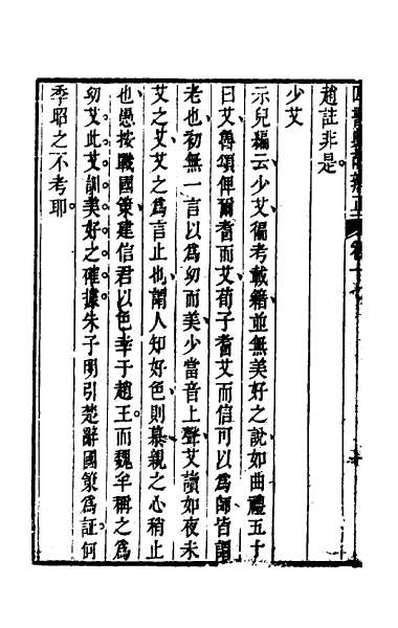 四書典故辨正 卷十
趙註非是。
少艾
示兒編云少艾徧考載籍並無美好之說如曲禮五十
曰艾魯頌俾爾耆而艾荀子耆艾而信可以為師皆謂
老也初無一言以為幼而美少當音上聲艾讀如夜未
艾之艾艾之為言止也人知好色則慕親之心稍止
也愚按戰國策建信君以色幸于趙王而魏牟稱之為
幼艾此艾訓美好之確據朱子明引楚辭國策為証何
季昭之不考耶。